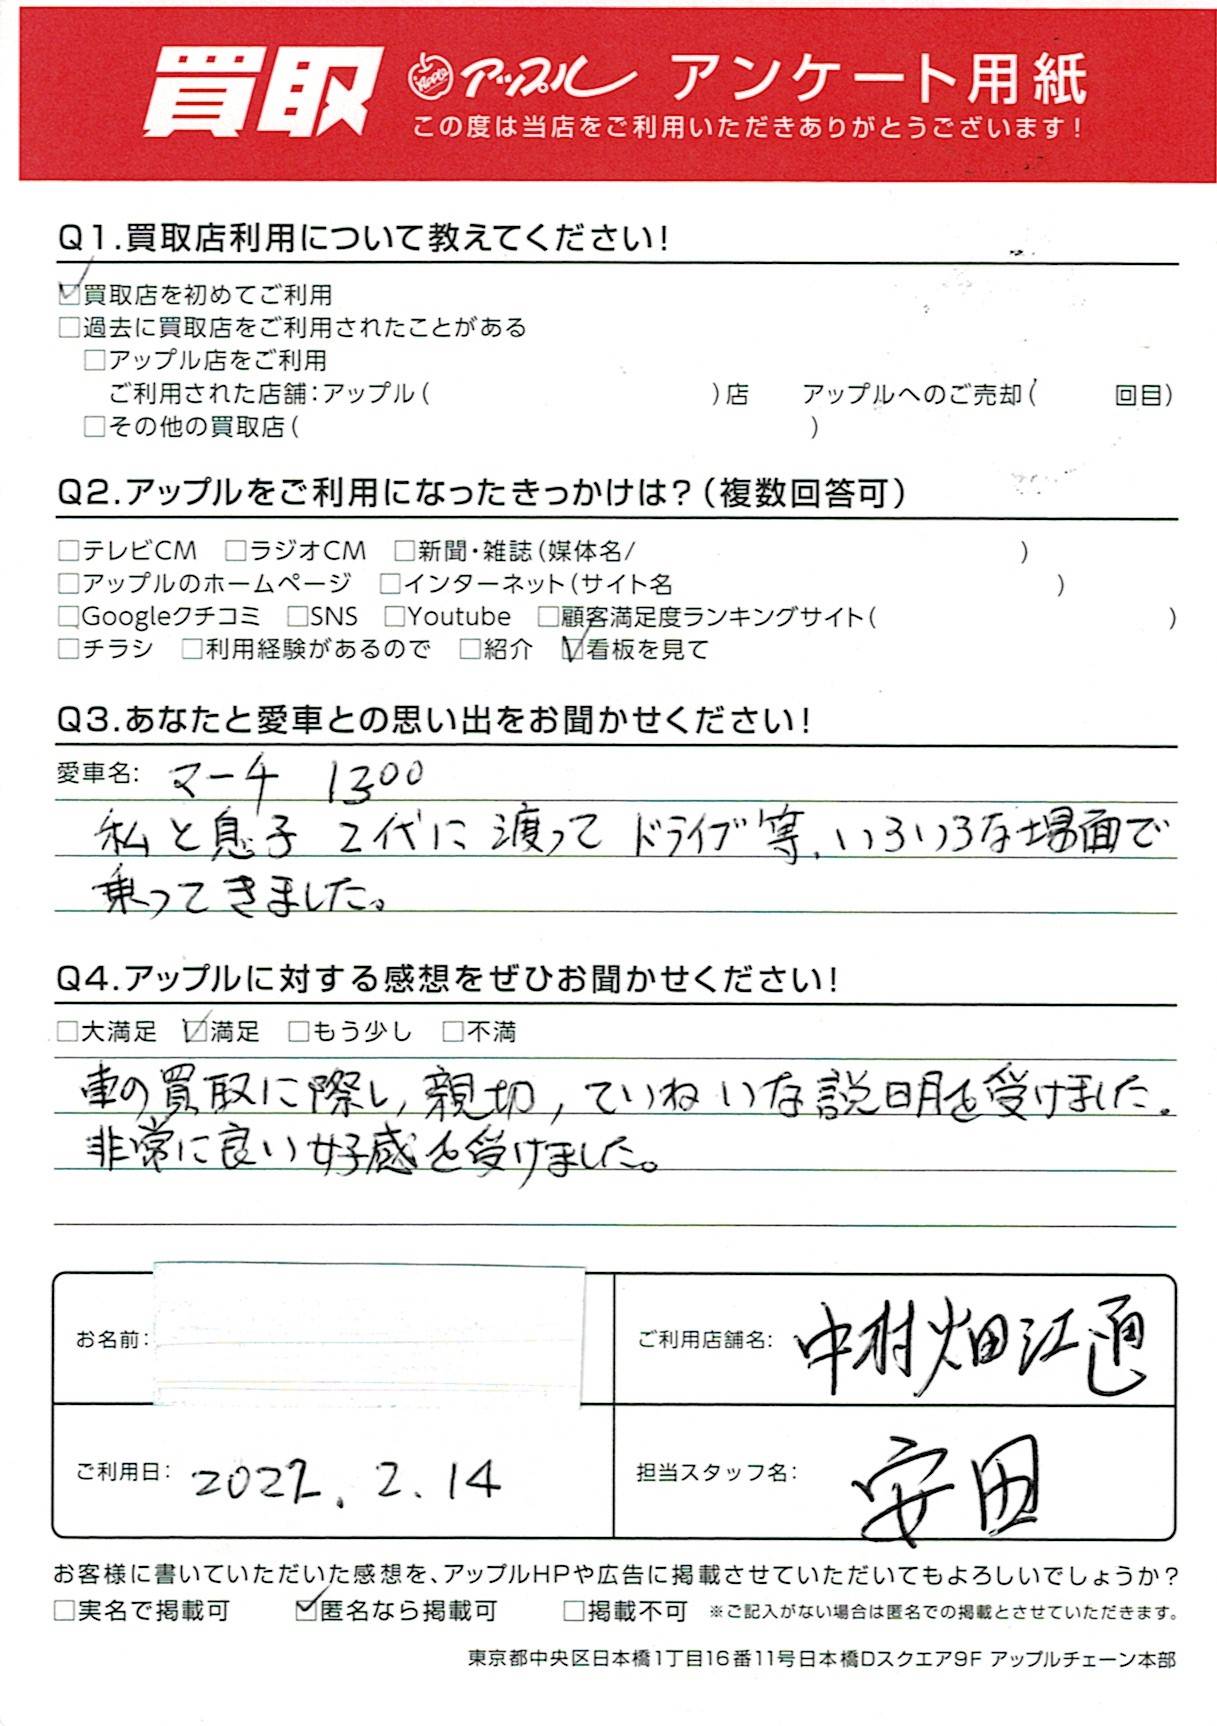 買取 アップル アンケート用紙
この度は当店をご利用いただきありがとうございます!
Q1.買取店利用について教えてください!
☑買取店を初めてご利用
□過去に買取店をご利用されたことがある
□アップル店をご利用
ご利用された店舗:アップル( )店 アップルへのご売却( 回目)
□その他の買取店( )
Q2.アップルをご利用になったきっかけは?(複数回答可)
□テレビCM □ラジオCM □新聞・雑誌(媒体名/ )
□アップルのホームページ □インターネット(サイト名 )
□Googleクチコミ □SNS □Youtube □顧客満足度ランキングサイト( )
□チラシ □利用経験があるので □紹介 ☑看板を見て
Q3.あなたと愛車との思い出をお聞かせください!
愛車名: マーチ 1300
私と息子 2代に渡ってドライブ等、いろいろな場面で
乗ってきました。
Q4.アップルに対する感想をぜひお聞かせください!
□大満足 ☑満足 □もう少し □不満
車の買取に際し、親切、ていねいな説明を受けました。
非常に良い好感を受けました。
お名前: ご利用店舗名: 中村畑江通
ご利用日: 2022.2.14 担当スタッフ名: 安田
お客様に書いていただいた感想を、アップルHPや広告に掲載させていただいてもよろしいでしょうか?
□実名で掲載可 ☑匿名なら掲載可 □掲載不可 ※ご記入がない場合は匿名での掲載とさせていただきます。
東京都中央区日本橋1丁目16番11号日本橋Dスクエア9F アップルチェーン本部